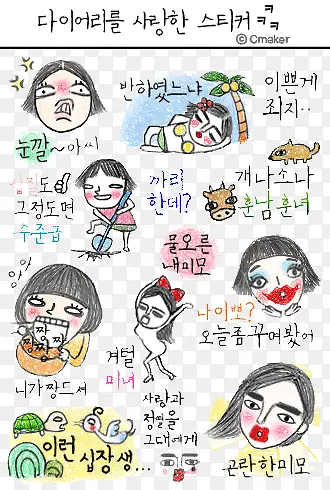 다이어리를 사랑한 스티커ㅋㅋ
© Cmaker
반하였느냐
이쁘게
좌지··
눈깔~아씨
삽질도
그정도면
수준급
까리
한데?
개나소나
훈남훈녀
물오른
내미모
나이뻐?
오늘좀꾸며봤어
짱
짱
짱
짱
니가짱드셔
겨털
미녀
사랑과
정열을
그대에게
이런
십장생...
곤란한미모